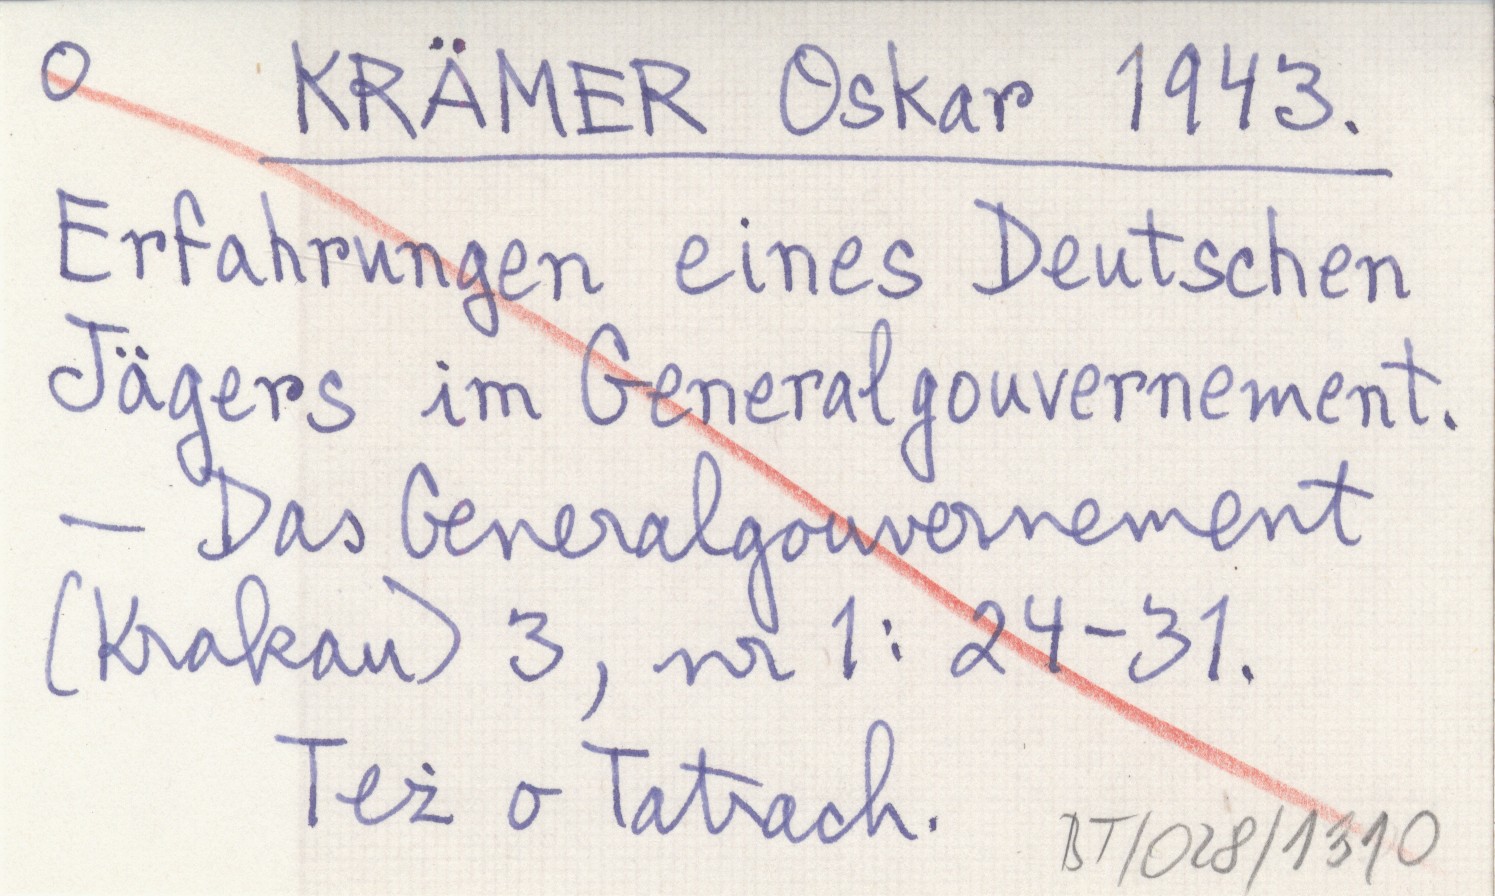 O KRÄMER Oskar 1943.
Erfahrungen eines Deutschen
Jägers im Generalgouvernement.
— Das Generalgouvernement
(Krakau) 3, nr 1: 24-31.
Też o Tatrach.
BT/028/1310